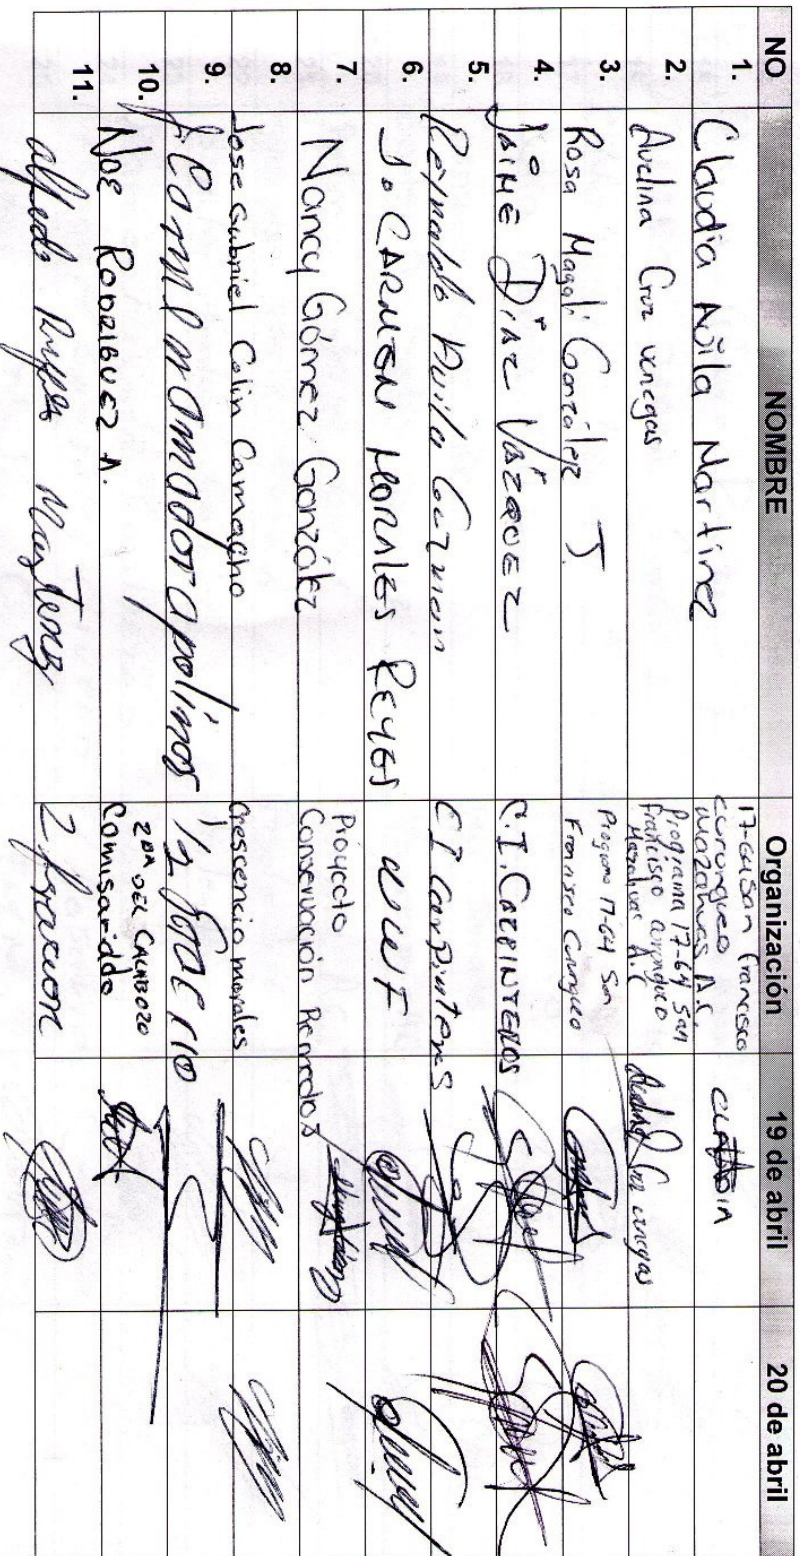 NO NOMBRE Organización 19 de abril 20 de abril
1. Claudia Avila Martinez 17-64 San Francisco
curungueo
mazahuas A.C
2. Avelina Cruz venegas Programa 17-64 San
Francisco
A.C
3. Rosa Magali González J. Programa 17-64 San
Francisco Curungueo
4. JAIME DÍAZ VÁZQUEZ C.I. CARPINTEROS
5. Reynaldo Avila Guzman C I Carpinteros
6. J. CARMEN MORALES REYES WWF
7. Nancy Gómez González Proyecto
Conservación Remota
8. Jose Gabriel Colin Camacho Crescencio Morales
9. amador apolinos
10. NOE RODRIGUEZ A. 2DA DEL CALABOZO
Comisariado
11. alfredo Reyes 2 fraccion